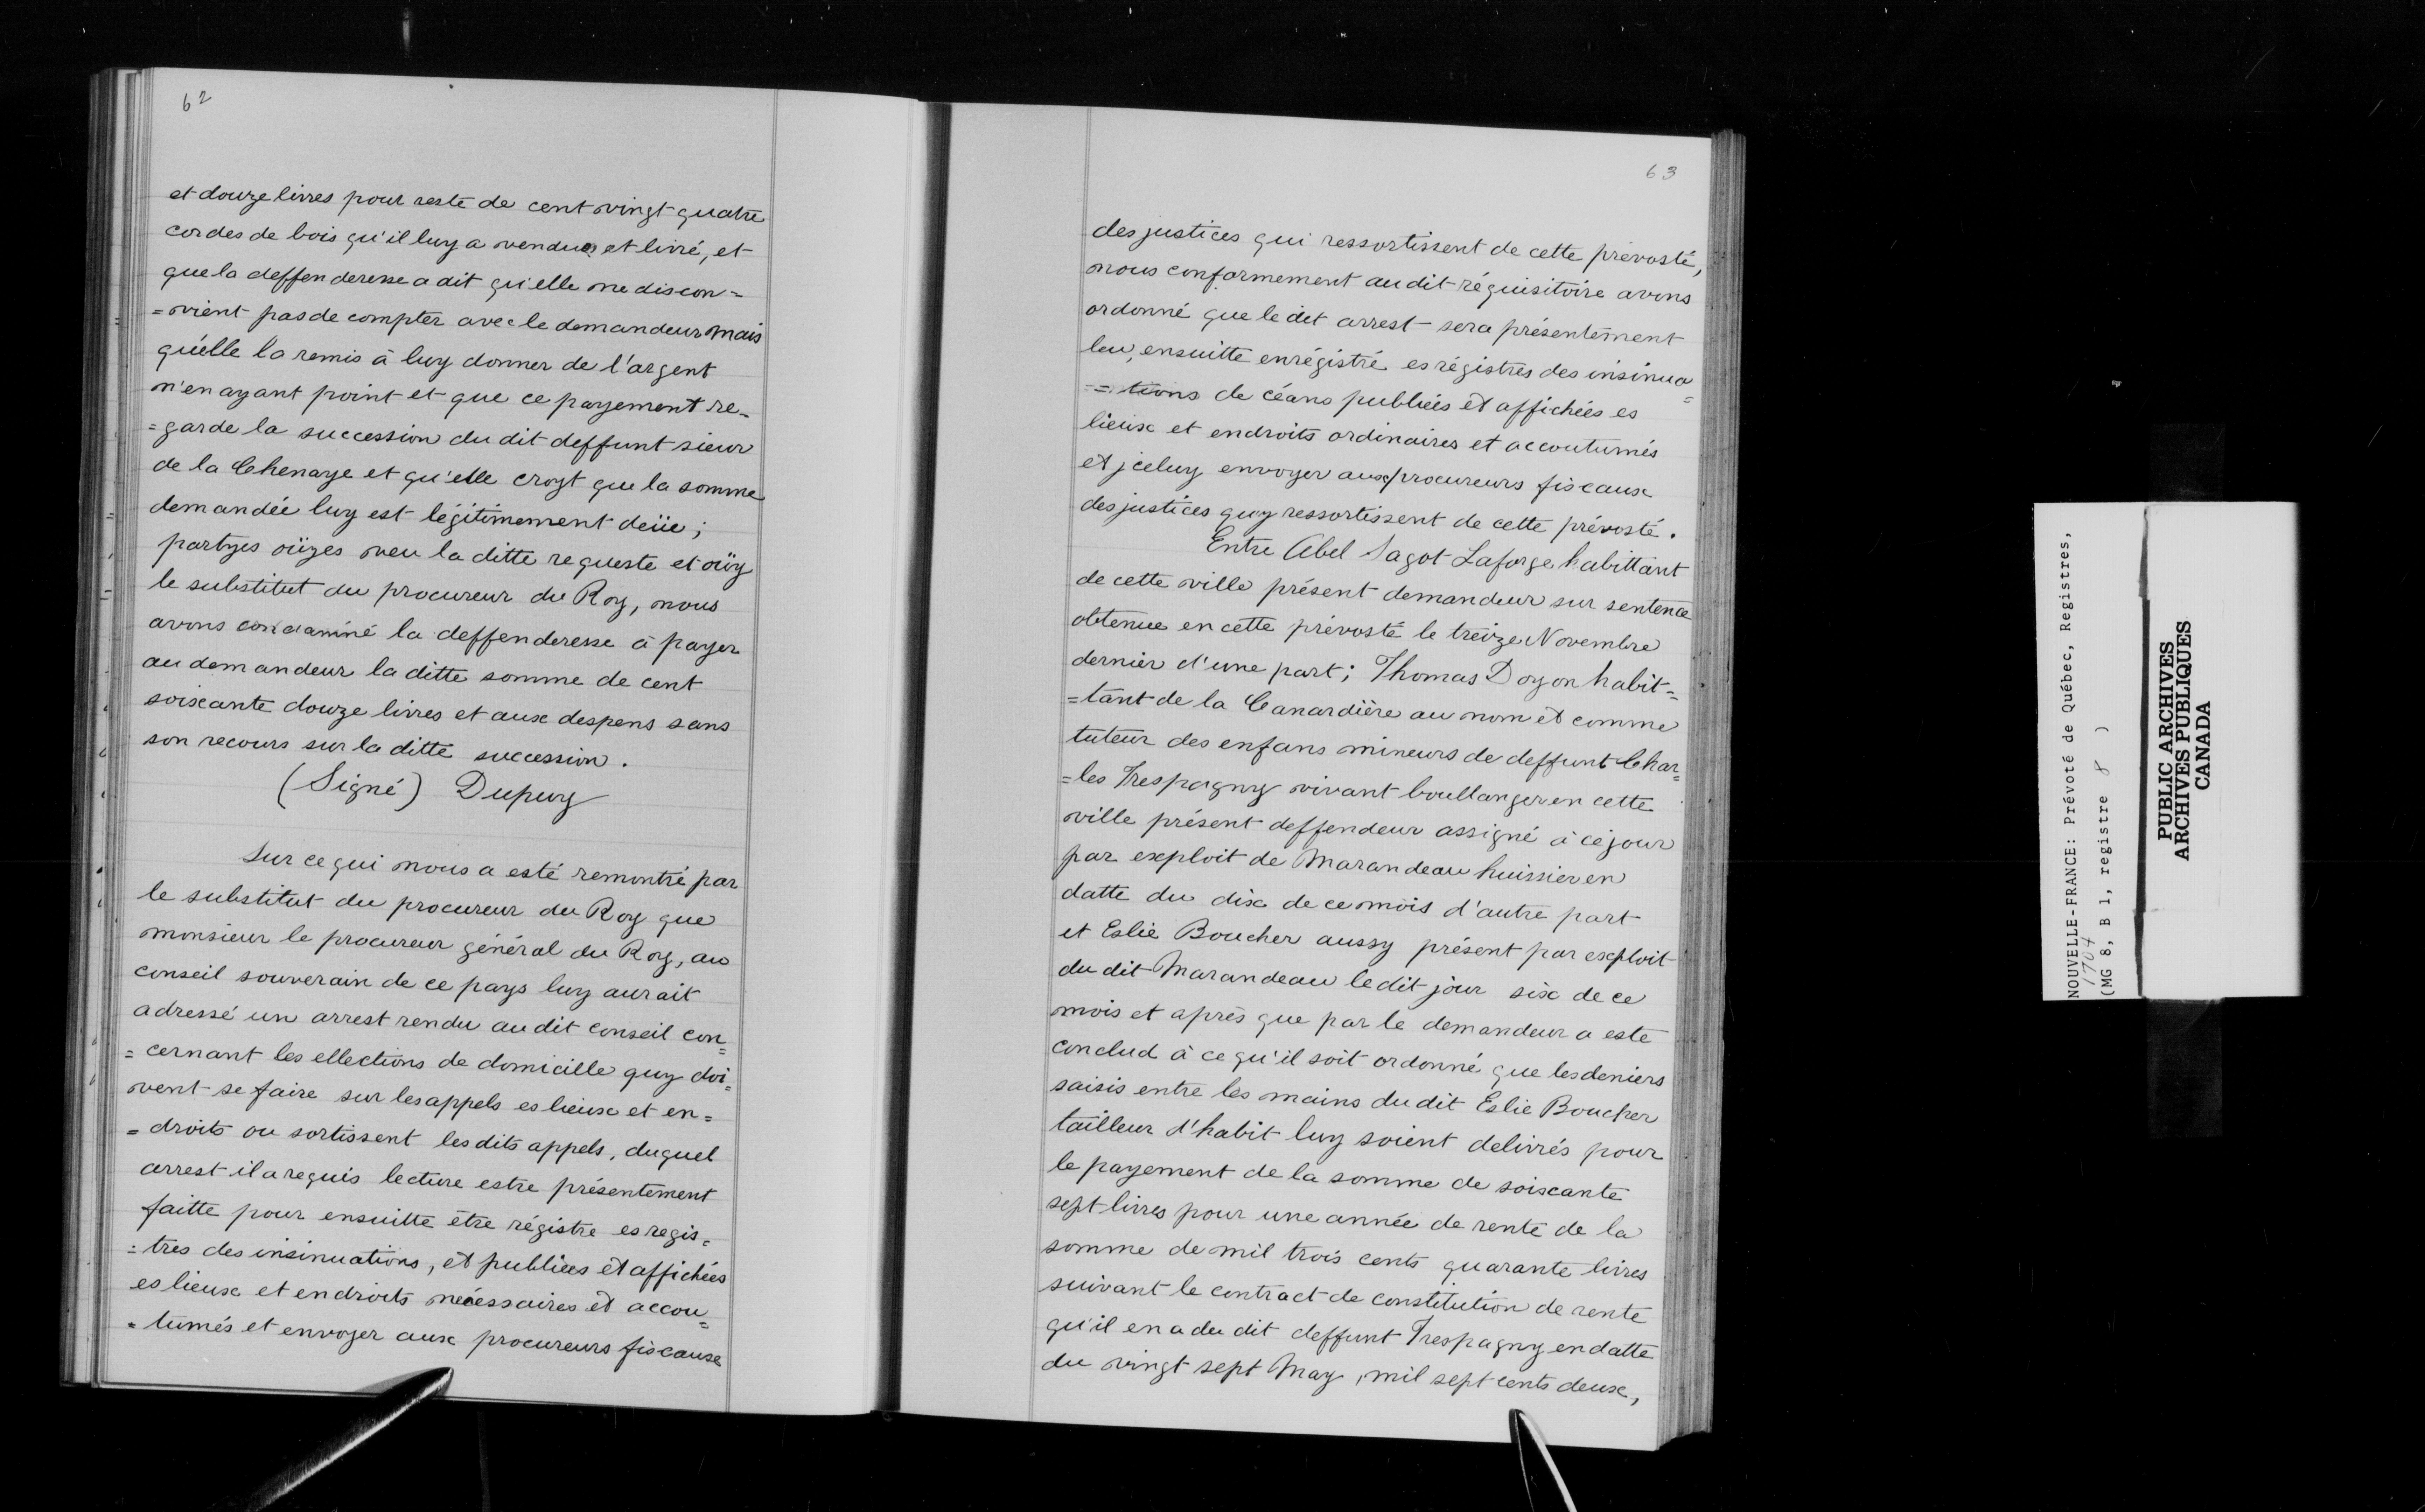 62
et douze livres pour reste de cent vingt quatre
cordes de bois qu'il luy a vendues et livré, et
que la deffenderesse a dit qu'elle ne discon=
=vient pas de compter avec le demandeur mais
qu'elle la remis à luy donner de l'argent
n'en ayant point et que ce payement re=
=garde la succession du dit deffunt sieur
de la Chenaye et qu'elle croyt que la somme
demandée luy est légitimement deüe;
partyes oüyes veu la ditte requeste et oüy
le substitut du procureur du Roy, nous
avons condamné la deffenderesse à payer
au demandeur la ditte somme de cent
soixante douze livres et aux despens sans
son recours sur la ditte succession.
(Signé) Dupuy
Sur ce qui nous a esté remontré par
le substitut du procureur du Roy que
monsieur le procureur général du Roy, au
conseil souverain de ce pays luy aurait
adressé un arrest rendu au dit conseil con=
=cernant les ellections de domicille quy doi=
vent se faire sur les appels es lieux et en=
=droits ou sortissent les dits appels, duquel
arrest il a requis lecture estre présentement
faitte pour ensuitte être régistre es regis=
=tres des insinuations, et publiees et affichées
es lieux et endroits nécessaires et accou=
=tumés et envoyer aux procureurs fiscaux
63
des justices qui ressortissent de cette prévosté,
nous conformement au dit réquisitoire avons
ordonné que le dit arrest sera présentement
leu, ensuitte enrégistré es régistres des insinua=
=tions de céans publiées et affichées es
lieux et endroits ordinaires et accoutumés
et jceluy envoyer aux procureurs fiscaux
des justices quy ressortissent de cette prévosté.
Entre Abel Sagot Laforge habittant
de cette ville présent demandeur sur sentence
obtenue en cette prévosté le treize Novembre
dernier d'une part; Thomas Doyon habit=
=tant de la Canardière au nom et comme
tuteur des enfans mineurs de deffunt Char=
=les Trespagny vivant boullanger en cette
ville présent deffendeur assigné à ce jour
par exploit de Marandeau huissier en
datte du dix de ce mois d'autre part
et Eslie Boucher aussy présent par exploit
du dit Marandeau le dit jour six de ce
mois et après que par le demandeur a este
conclud à ce qu'il soit ordonné que les deniers
saisis entre les mains du dit Eslie Boucher
tailleur d'habit luy soient delivrés pour
le payement de la somme de soixante
sept livres pour une année de rente de la
somme de mil trois cents quarante livres
suivant le contract de constitution de rente
qu'il en a du dit deffunt Trespagny en datte
du vingt sept May, mil sept cents deux,
NOUVELLE-FRANCE: Prévoté de Québec, Registres,
1704
(MG 8, B 1, registre 8 )
PUBLIC ARCHIVES
ARCHIVES PUBLIQUES
CANADA